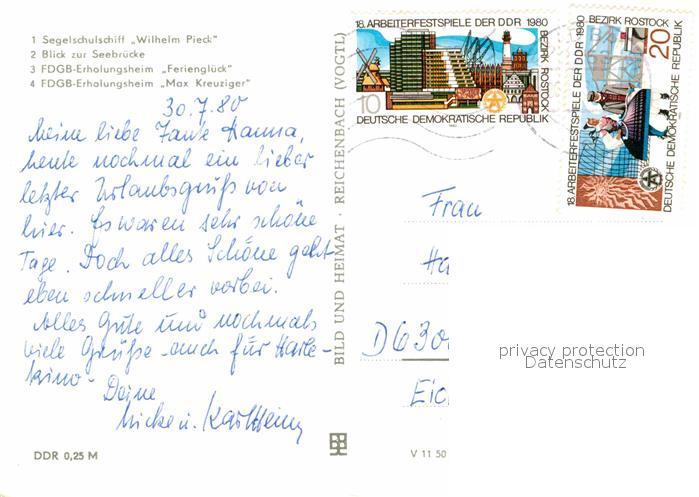 1 Segelschulschiff „Wilhelm Pieck"
2 Blick zur Seebrücke
3 FDGB-Erholungsheim „Ferienglück"
4 FDGB-Erholungsheim „Max Kreuziger"
30.7.80
Meine liebe Tante Hanna,
heute nochmal ein lieber
letzter Urlaubsgruß von
hier. Es waren sehr schöne
Tage. Doch alles Schöne geht
eben schneller vorbei.
Alles Gute und nochmals
viele Grüße auch für Harle-
kino - Deine
Micke u. Karlheinz
DDR 0,25 M
BILD UND HEIMAT · REICHENBACH (VOGTL)
18. ARBEITERFESTSPIELE DER DDR 1980
BEZIRK ROSTOCK
10
DEUTSCHE DEMOKRATISCHE REPUBLIK
18. ARBEITERFESTSPIELE DER DDR 1980
BEZIRK ROSTOCK
20
DEUTSCHE DEMOKRATISCHE REPUBLIK
Frau
Ha
D 630
Eic
V 11 50
privacy protection
Datenschutz